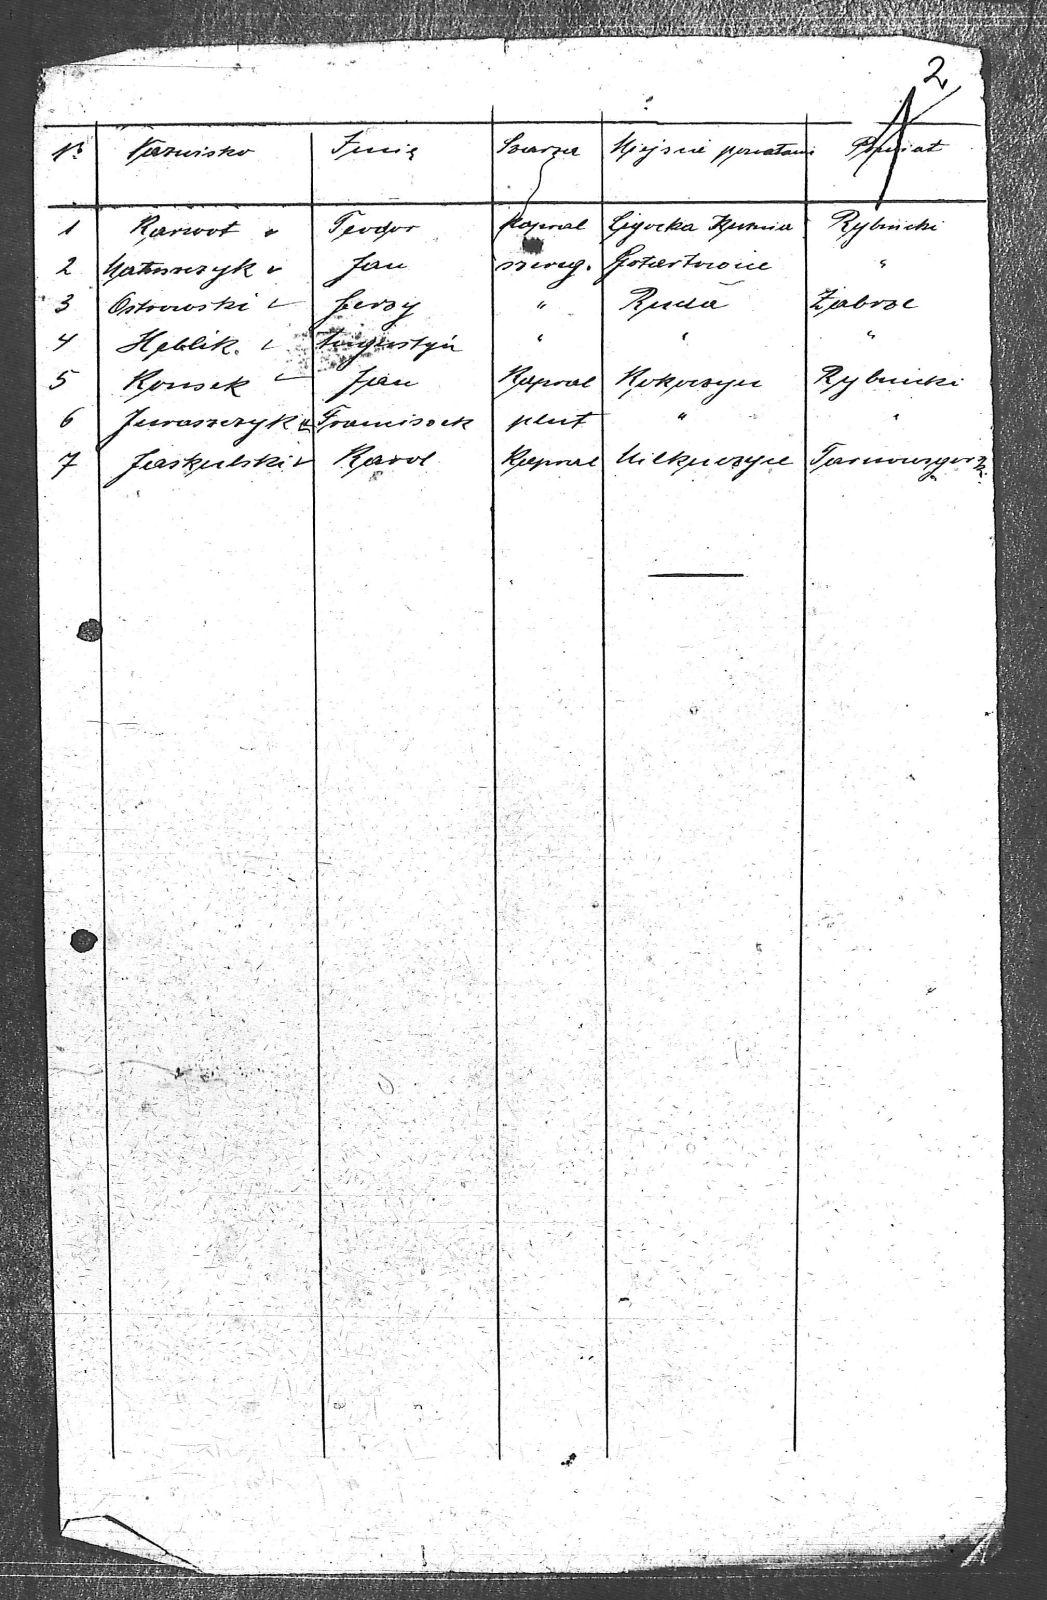 2
Nr Nazwisko Imię Szarża Miejsce Powiat
1 Karwot Teodor Kapral Ligocka Kuźnia Rybnicki
2 Matuszczyk Jan szereg. Gotartowice "
3 Ostrowski Jerzy " Ruda Zabrze
4 Heblik. Augustyn " " "
5 Konsek Jan Kapral Kokoszyce Rybnicki
6 Juraszczyk Franciszek plut " "
7 Jaskulski Karol Kapral Tarnowsgorz